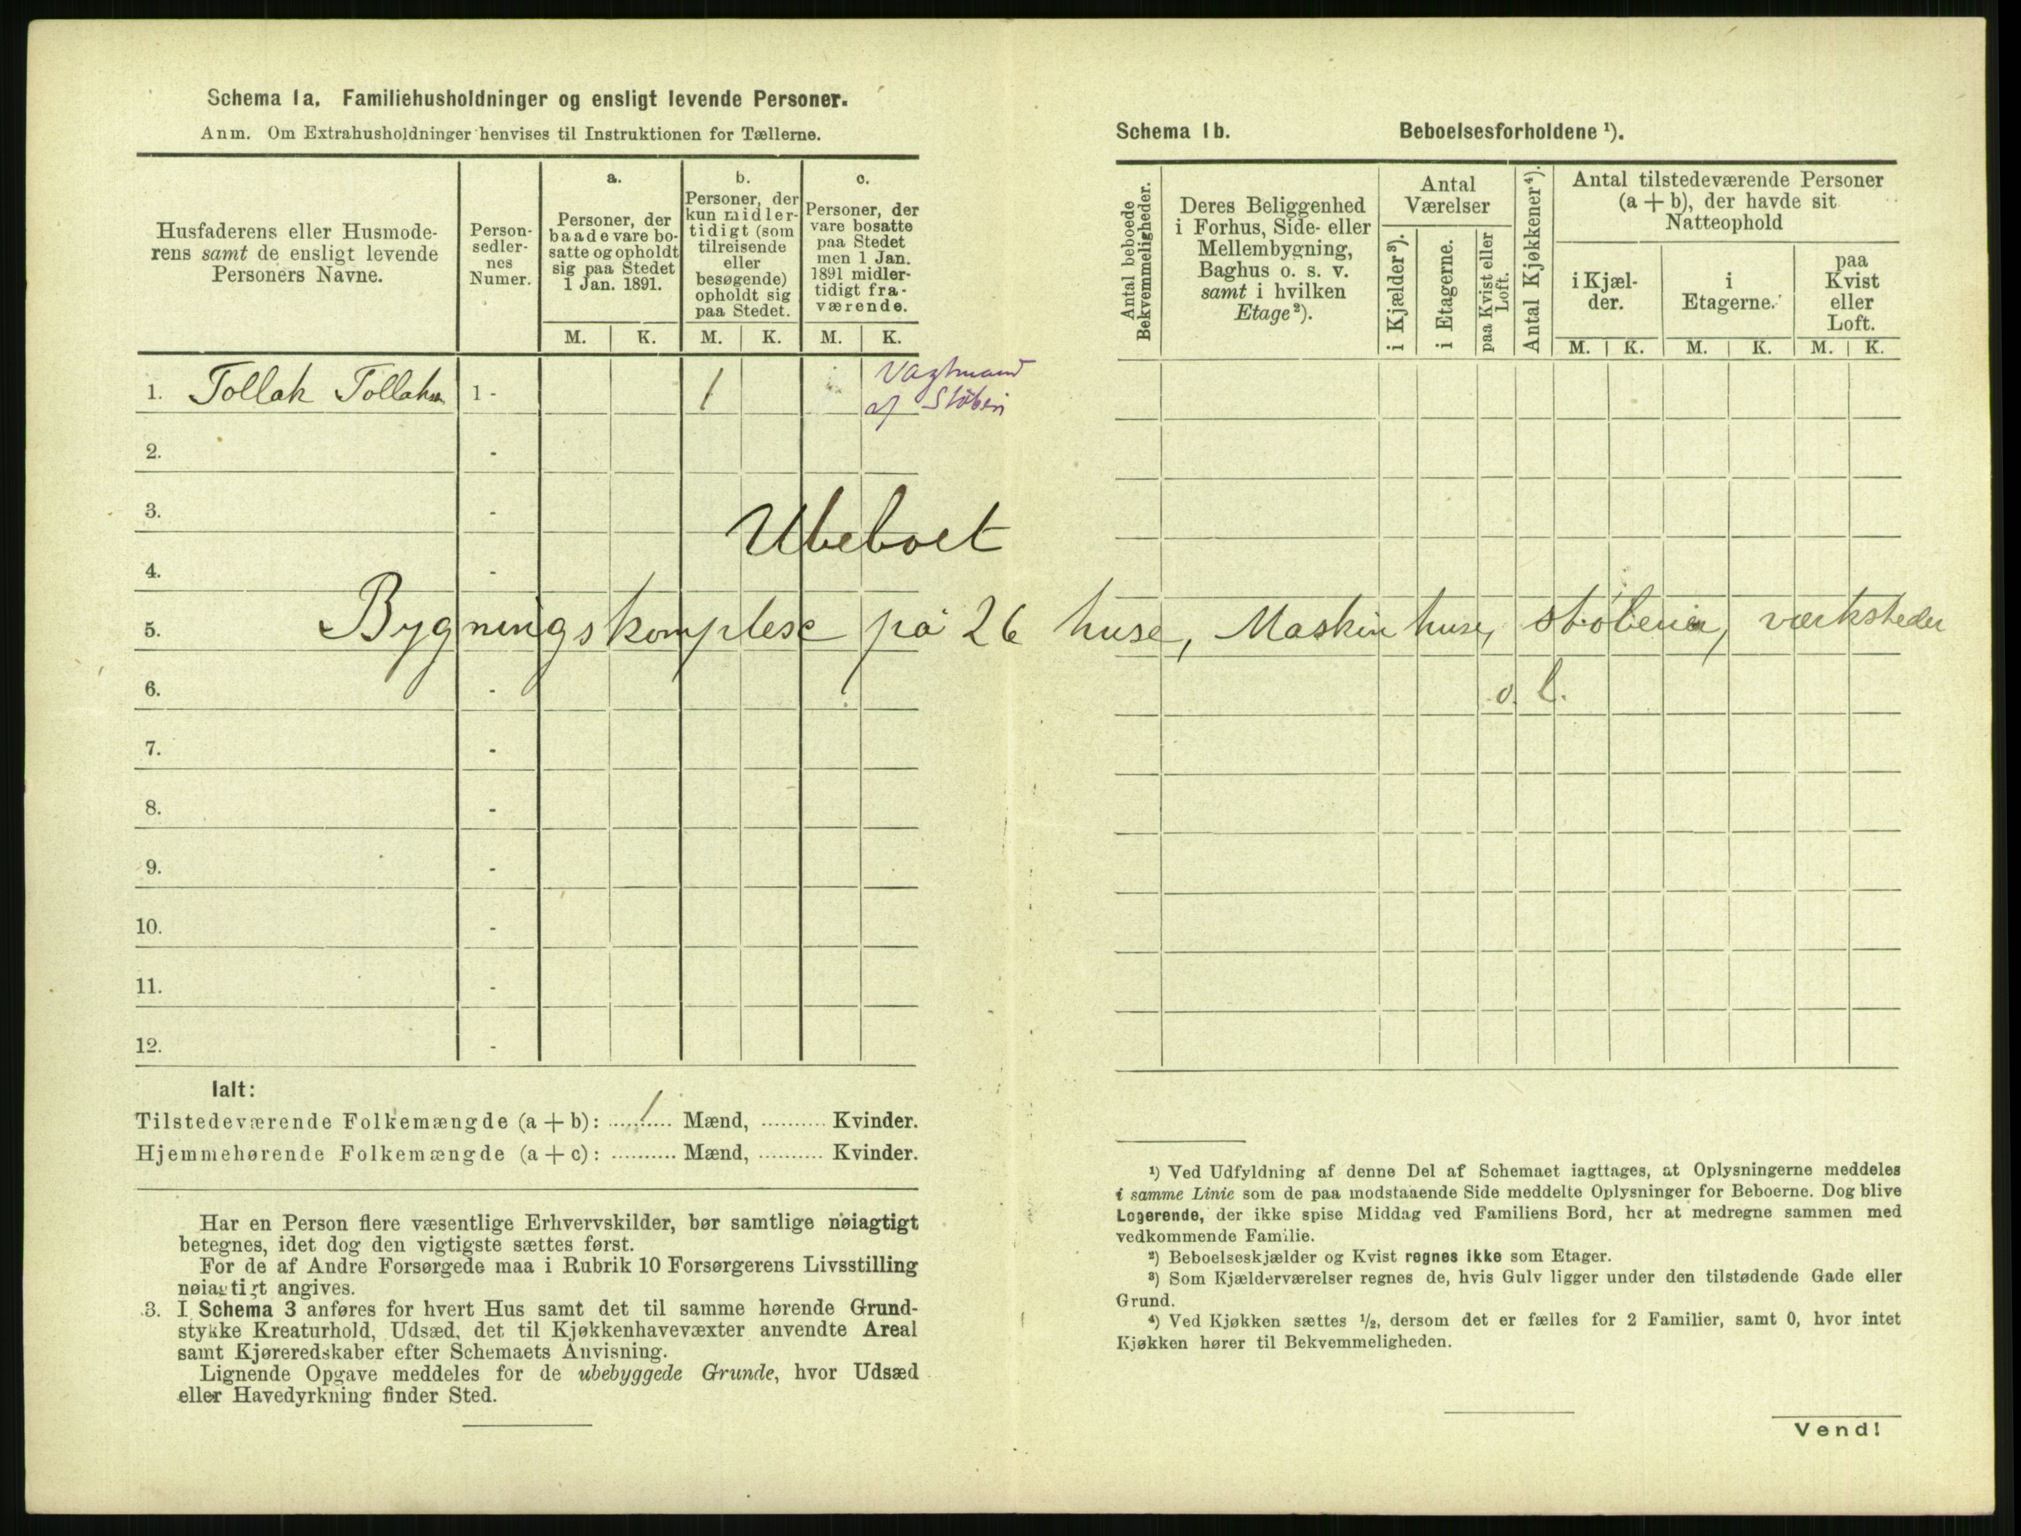 Schema 1a. Familiehusholdninger og ensligt levende Personer.
Anm. Om Extrahusholdninger henvises til Instruktionen for Tællerne.
Husfaderens eller Husmode-
rens samt de ensligt levende
Personers Navne.
Person-
sedler-
nes
Numer.
a.
Personer, der
baade vare bo-
satte og opholdt
sig paa Stedet
1 Jan. 1891.
b.
Personer, der
kun midler-
tidigt (som
tilreisende
eller
besøgende)
opholdt sig
paa Stedet.
c.
Personer, der
vare bosatte
paa Stedet
men 1 Jan.
1891 midler-
tidigt fra-
værende.
M. K. M. K. M. K.
1. Tollak Tollaksen 1 - 1 Vagtmand
af Støberi
2. -
3. -
Ubeboet
4. -
5. Bygningskomplese på 26 huse, Maskinhuse, støberier, værksteder
6. - o. l.
7. -
8. -
9. -
10. -
11. -
12. -
Ialt:
Tilstedeværende Folkemængde (a + b): 1 Mænd, .......... Kvinder.
Hjemmehørende Folkemængde (a + c): .......... Mænd, .......... Kvinder.
Har en Person flere væsentlige Erhvervskilder, bør samtlige nøiagtigt
betegnes, idet dog den vigtigste sættes først.
For de af Andre Forsørgede maa i Rubrik 10 Forsørgerens Livsstilling
nøiagtigt angives.
3. I Schema 3 anføres for hvert Hus samt det til samme hørende Grund-
stykke Kreaturhold, Udsæd, det til Kjøkkenhavevæxter anvendte Areal
samt Kjøreredskaber efter Schemaets Anvisning.
Lignende Opgave meddeles for de ubebyggede Grunde, hvor Udsæd
eller Havedyrkning finder Sted.
Schema 1b. Beboelsesforholdene ¹).
Antal beboede
Bekvemmeligheder.
Deres Beliggenhed
i Forhus, Side- eller
Mellembygning,
Baghus o. s. v.
samt i hvilken
Etage ²).
Antal
Værelser
i Kjælder ³).
i Etagerne.
paa Kvist eller
Loft.
Antal Kjøkkener ⁴).
Antal tilstedeværende Personer
(a + b), der havde sit
Natteophold
i Kjæl-
der.
i
Etagerne.
paa
Kvist
eller
Loft.
M. K. M. K. M. K.
¹) Ved Udfyldning af denne Del af Schemaet iagttages, at Oplysningerne meddeles
i samme Linie som de paa modstaaende Side meddelte Oplysninger for Beboerne. Dog blive
Logerende, der ikke spise Middag ved Familiens Bord, her at medregne sammen med
vedkommende Familie.
²) Beboelseskjælder og Kvist regnes ikke som Etager.
³) Som Kjælderværelser regnes de, hvis Gulv ligger under den tilstødende Gade eller
Grund.
⁴) Ved Kjøkken sættes ½, dersom det er fælles for 2 Familier, samt 0, hvor intet
Kjøkken hører til Bekvemmeligheden.
Vend!